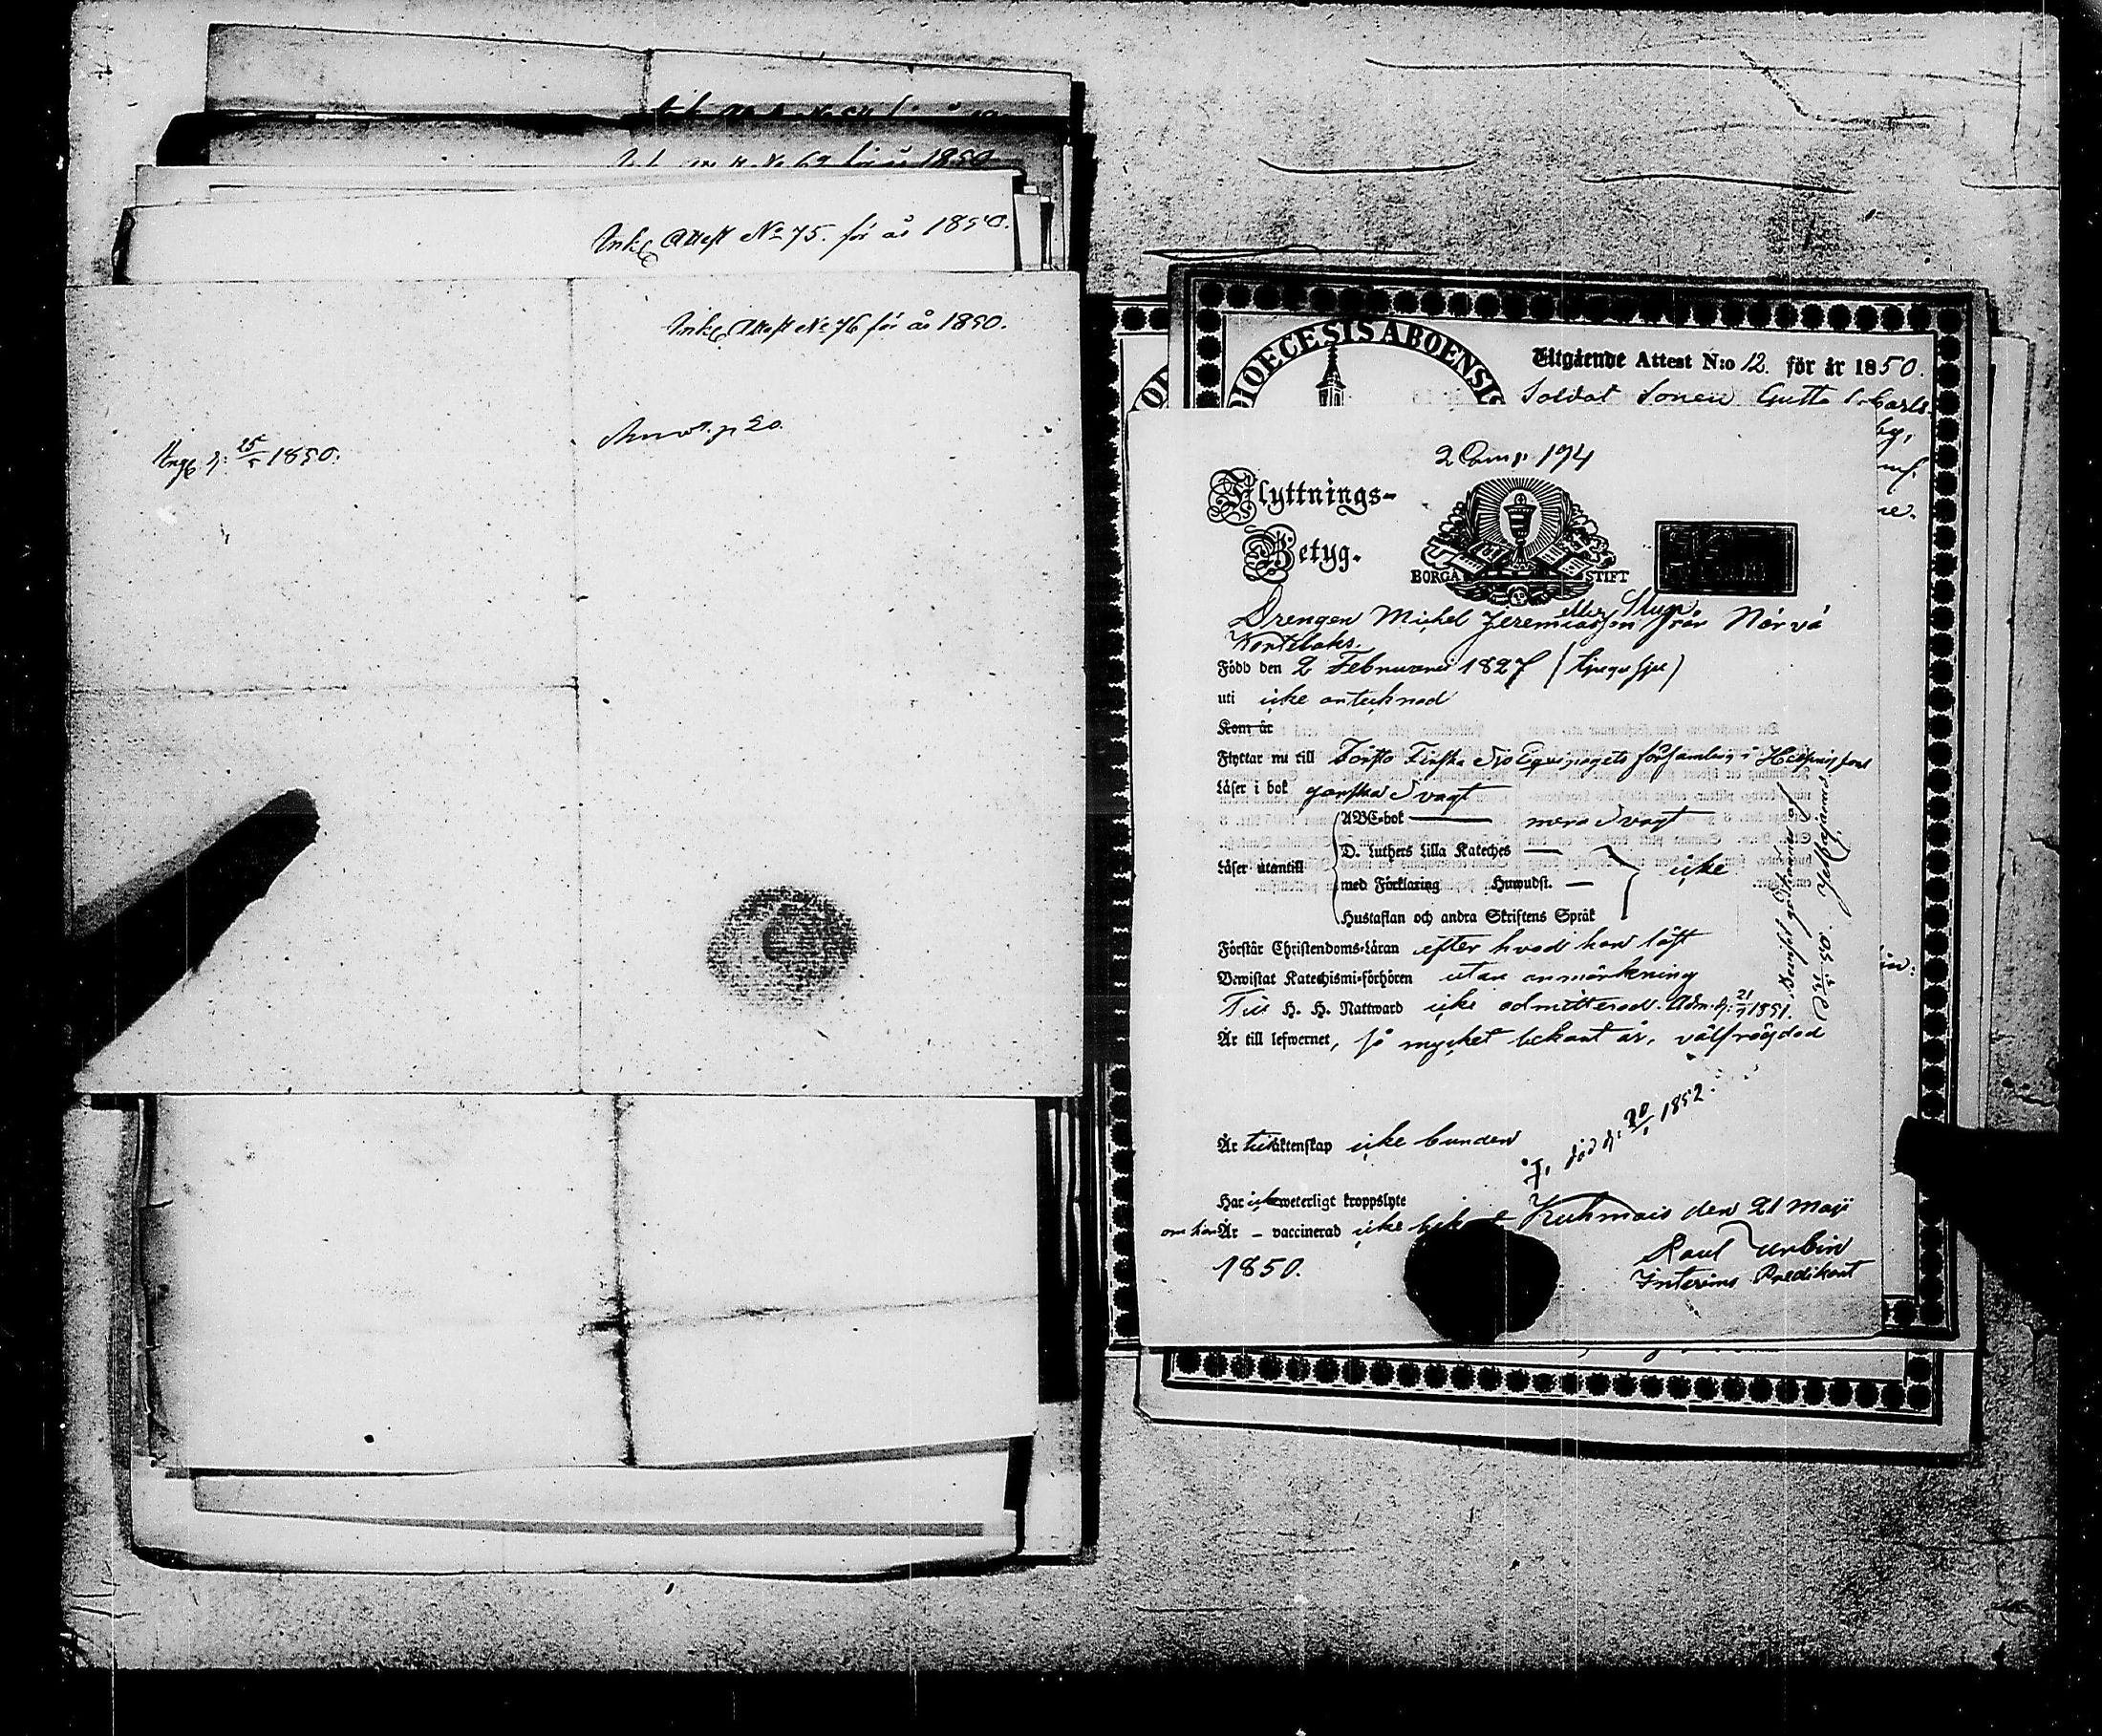 Ink. Attest No 75. för år 1850.
Ink. Attest No 76 för år 1850.
p 20.
25/5 1850.
DIOECESIS ABOENSIS
Utgående Attest N:o 12. för år 1850.
Soldat Sonen Gustaf Carls
2 Comp. 194
Flyttnings-
Betyg.
BORGÅ STIFT
Drengen Michel Jeremiasson eller Stup från
Född den 2 Februarii 1827 (tjugusju)
uti icke antecknad
Kom år
Flyttar nu till Första Finska Sjö Equipagets församling i Helsingfors
Läser i bok ganska Svagt
ABC-bok — mera Svagt
Läser utantill
D. Luthers Lilla Kateches —
med Förklaring Huwudst. —
icke
Hustaflan och andra Skriftens Språk
Förstår Christendoms-Läran efter hvad han läst
Bewistat Katechismi-förhören utan anmärkning
Till H. H. Nattward icke admitterad. Adm. d. 1851.
Är till lefwernet, så mycket bekant är, välfrägdad
Är till äktenskap icke bunden
död d. 1852.
Har icke weterligt kroppslyte
om han Är — vaccinerad icke
Kuhmois den 21 Maji
1850.
Urbin
Interims Predikant